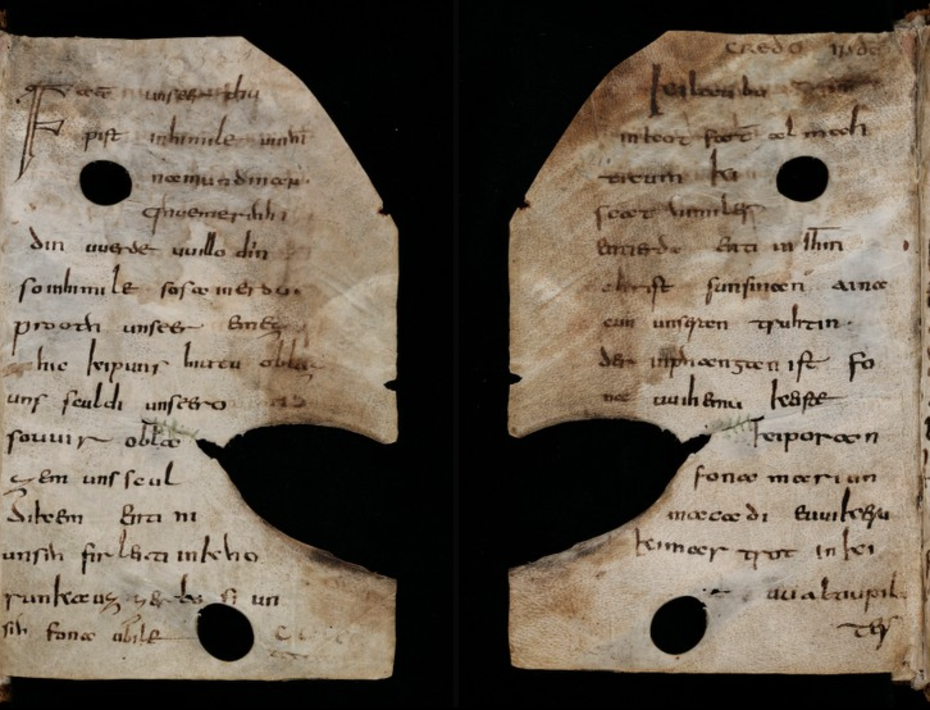 Fater unseer thu
pist inhimile uuihi
namun dinan
qhueme rihhi
din uuerde uuillo diin
so inhimile sosa in erdu
prooth unseer emez
zihic kip uns hiutu oblaz
uns sculdi unseero
so uuir obla
zem uns scul
dikem enti ni
unsih firleiti in khо
runka uzzer losi un
sih fona ubile
CREDO IN DEO
kilaubu
in kot fater almah
ticun ki
scaft himiles
enti erda enti in ihm
christ sun sinan aina
cun unseran truhtin
der inphangan ist fo
na uuihemu keiste
kiporan
fona mariun
macadi euuikeru
kimartrot in ki
uualtiu pila
tes